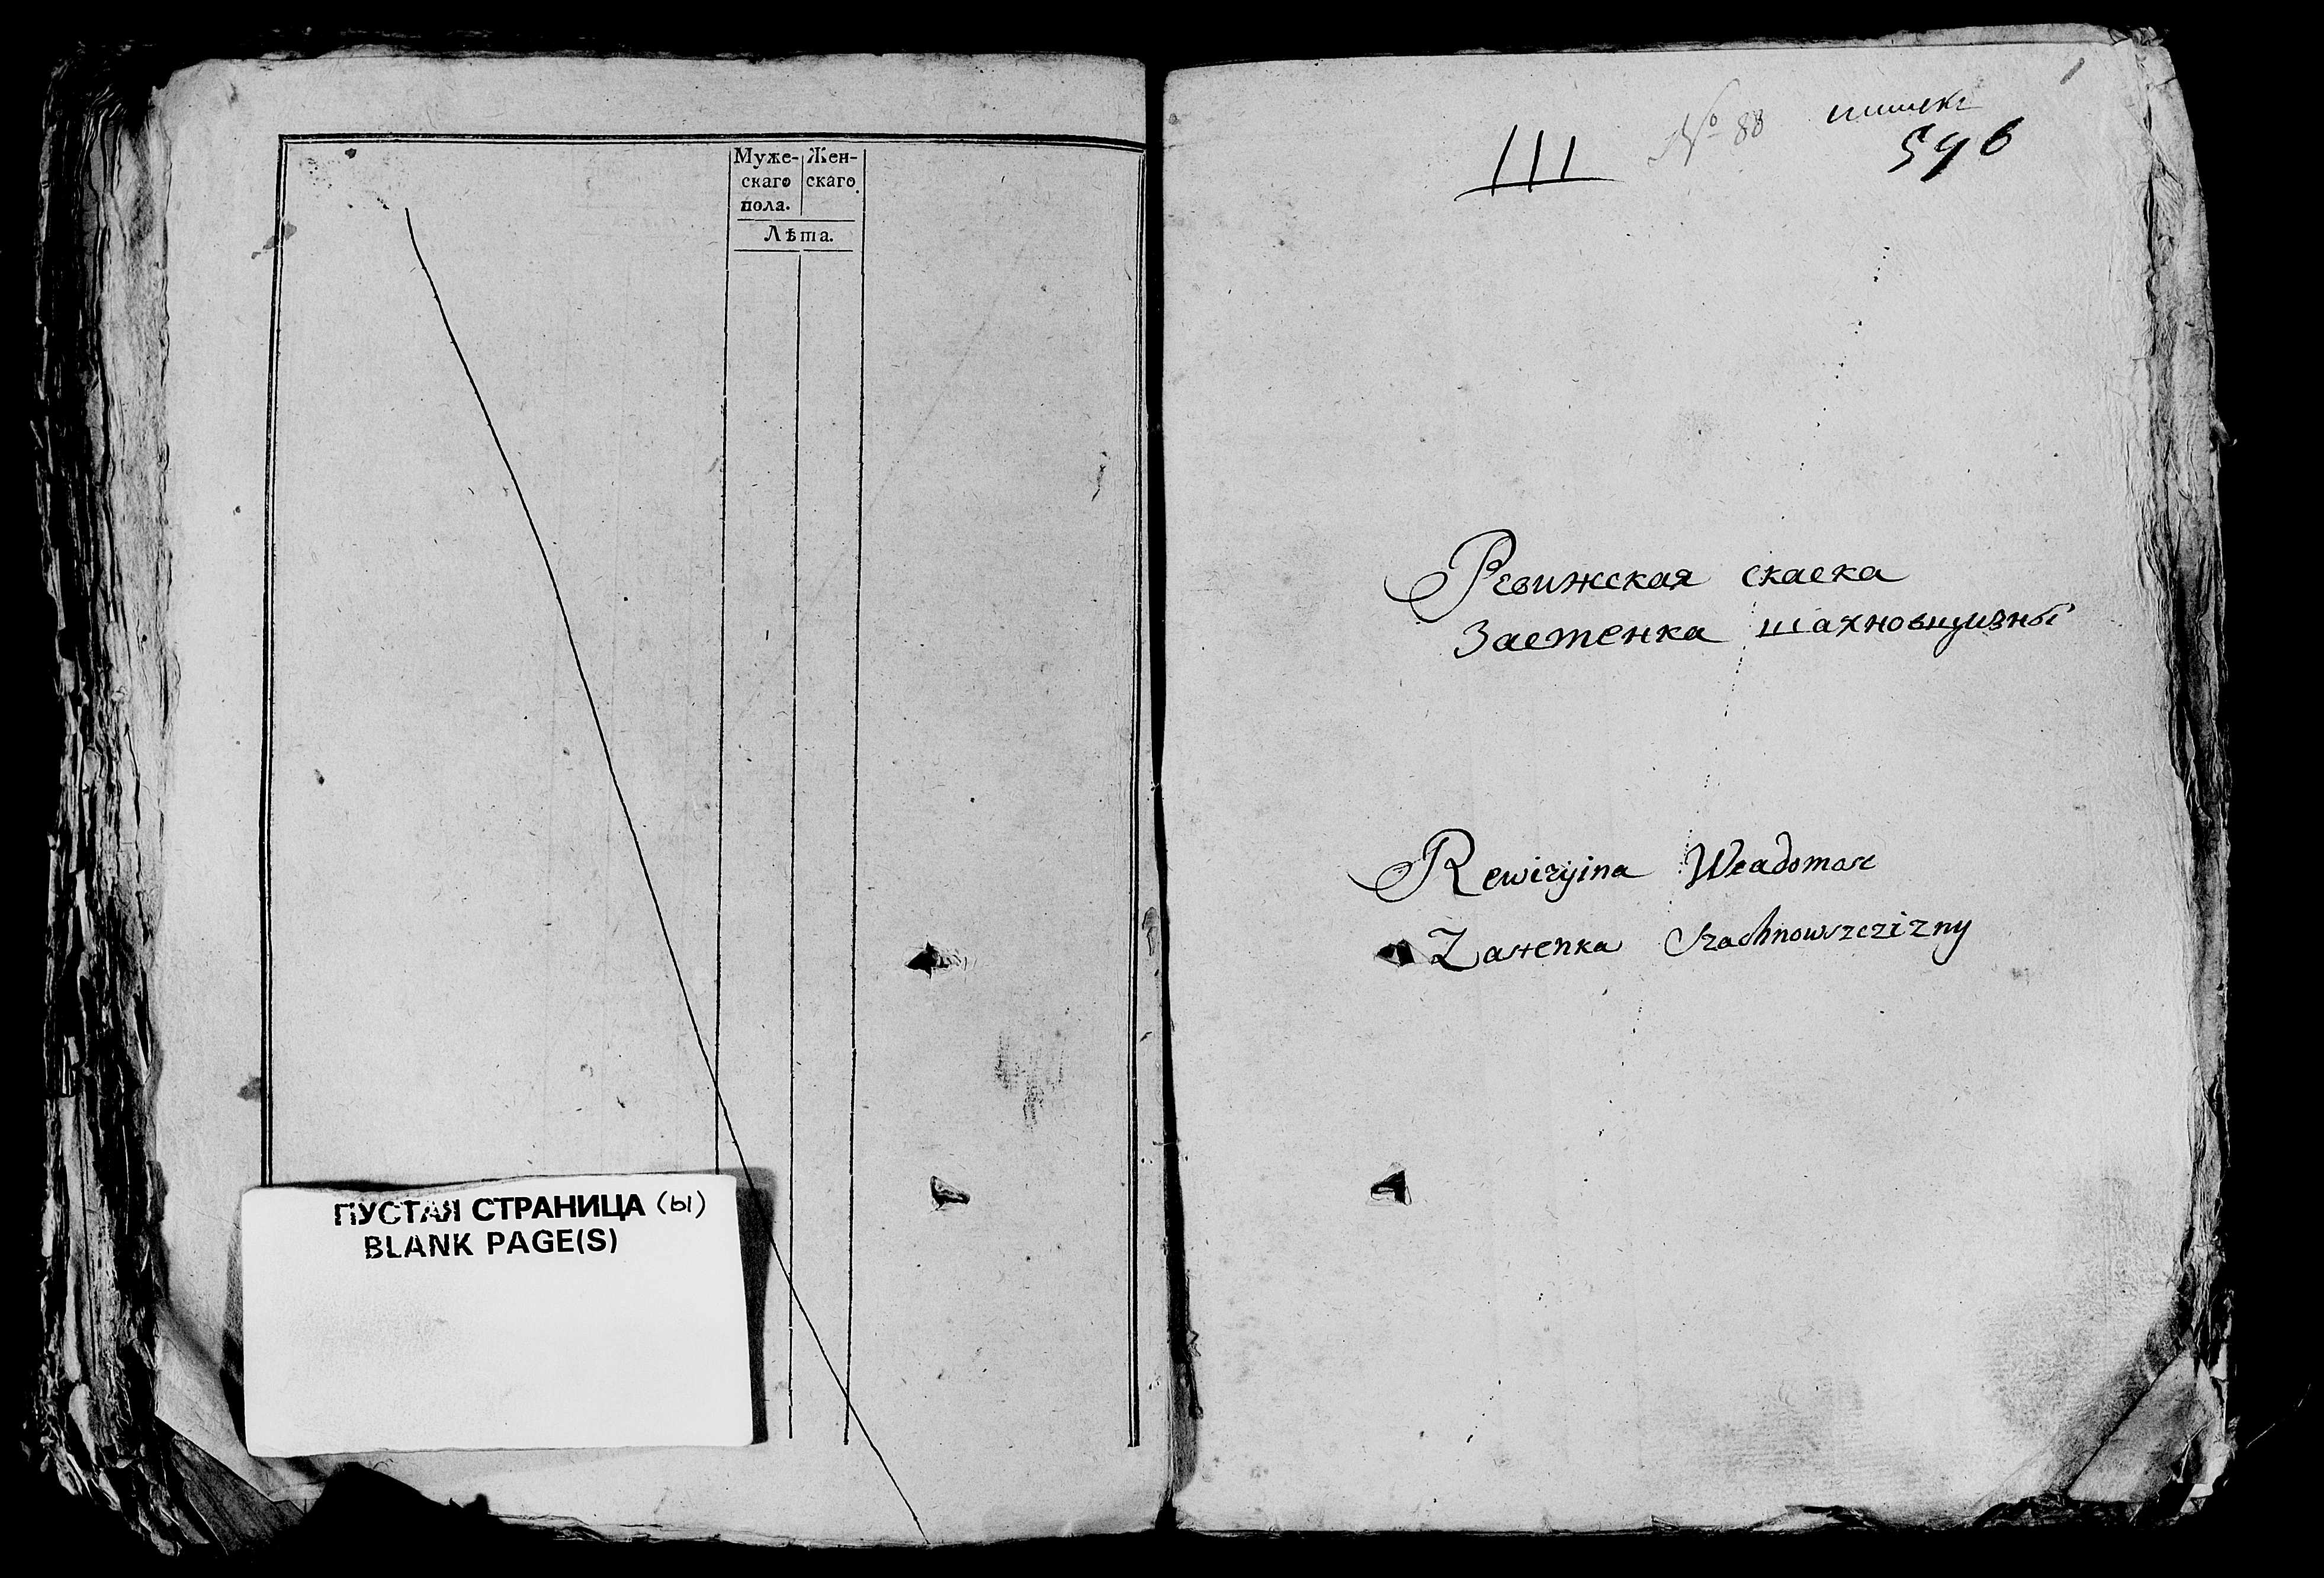 Муже- Жен-
скаго скаго
пола.
Лѣта.
ПУСТАЯ СТРАНИЦА (ы)
BLANK PAGE(S)
1
III № 88
596
Ревижская скаска
Застенка шахновщизны
Rewizyina Weadomosc
Zastenka Szachnowszczizny